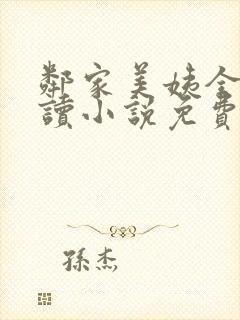 鄰家美姨全
讀小說免費
孫杰